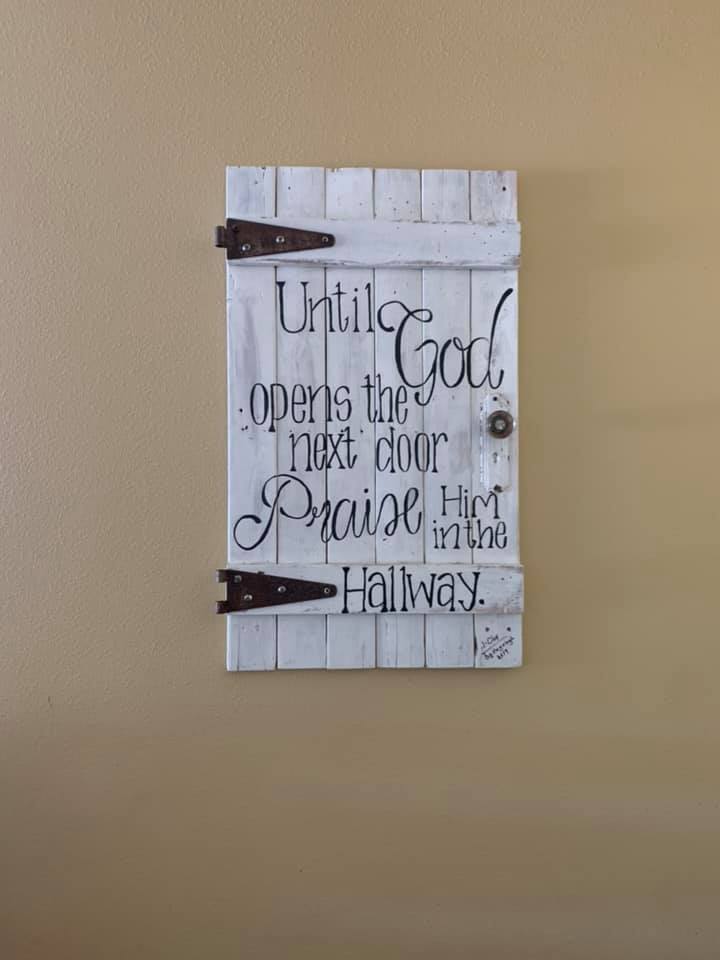 Until God
opens the
next door
Praise Him
in the
Hallway.